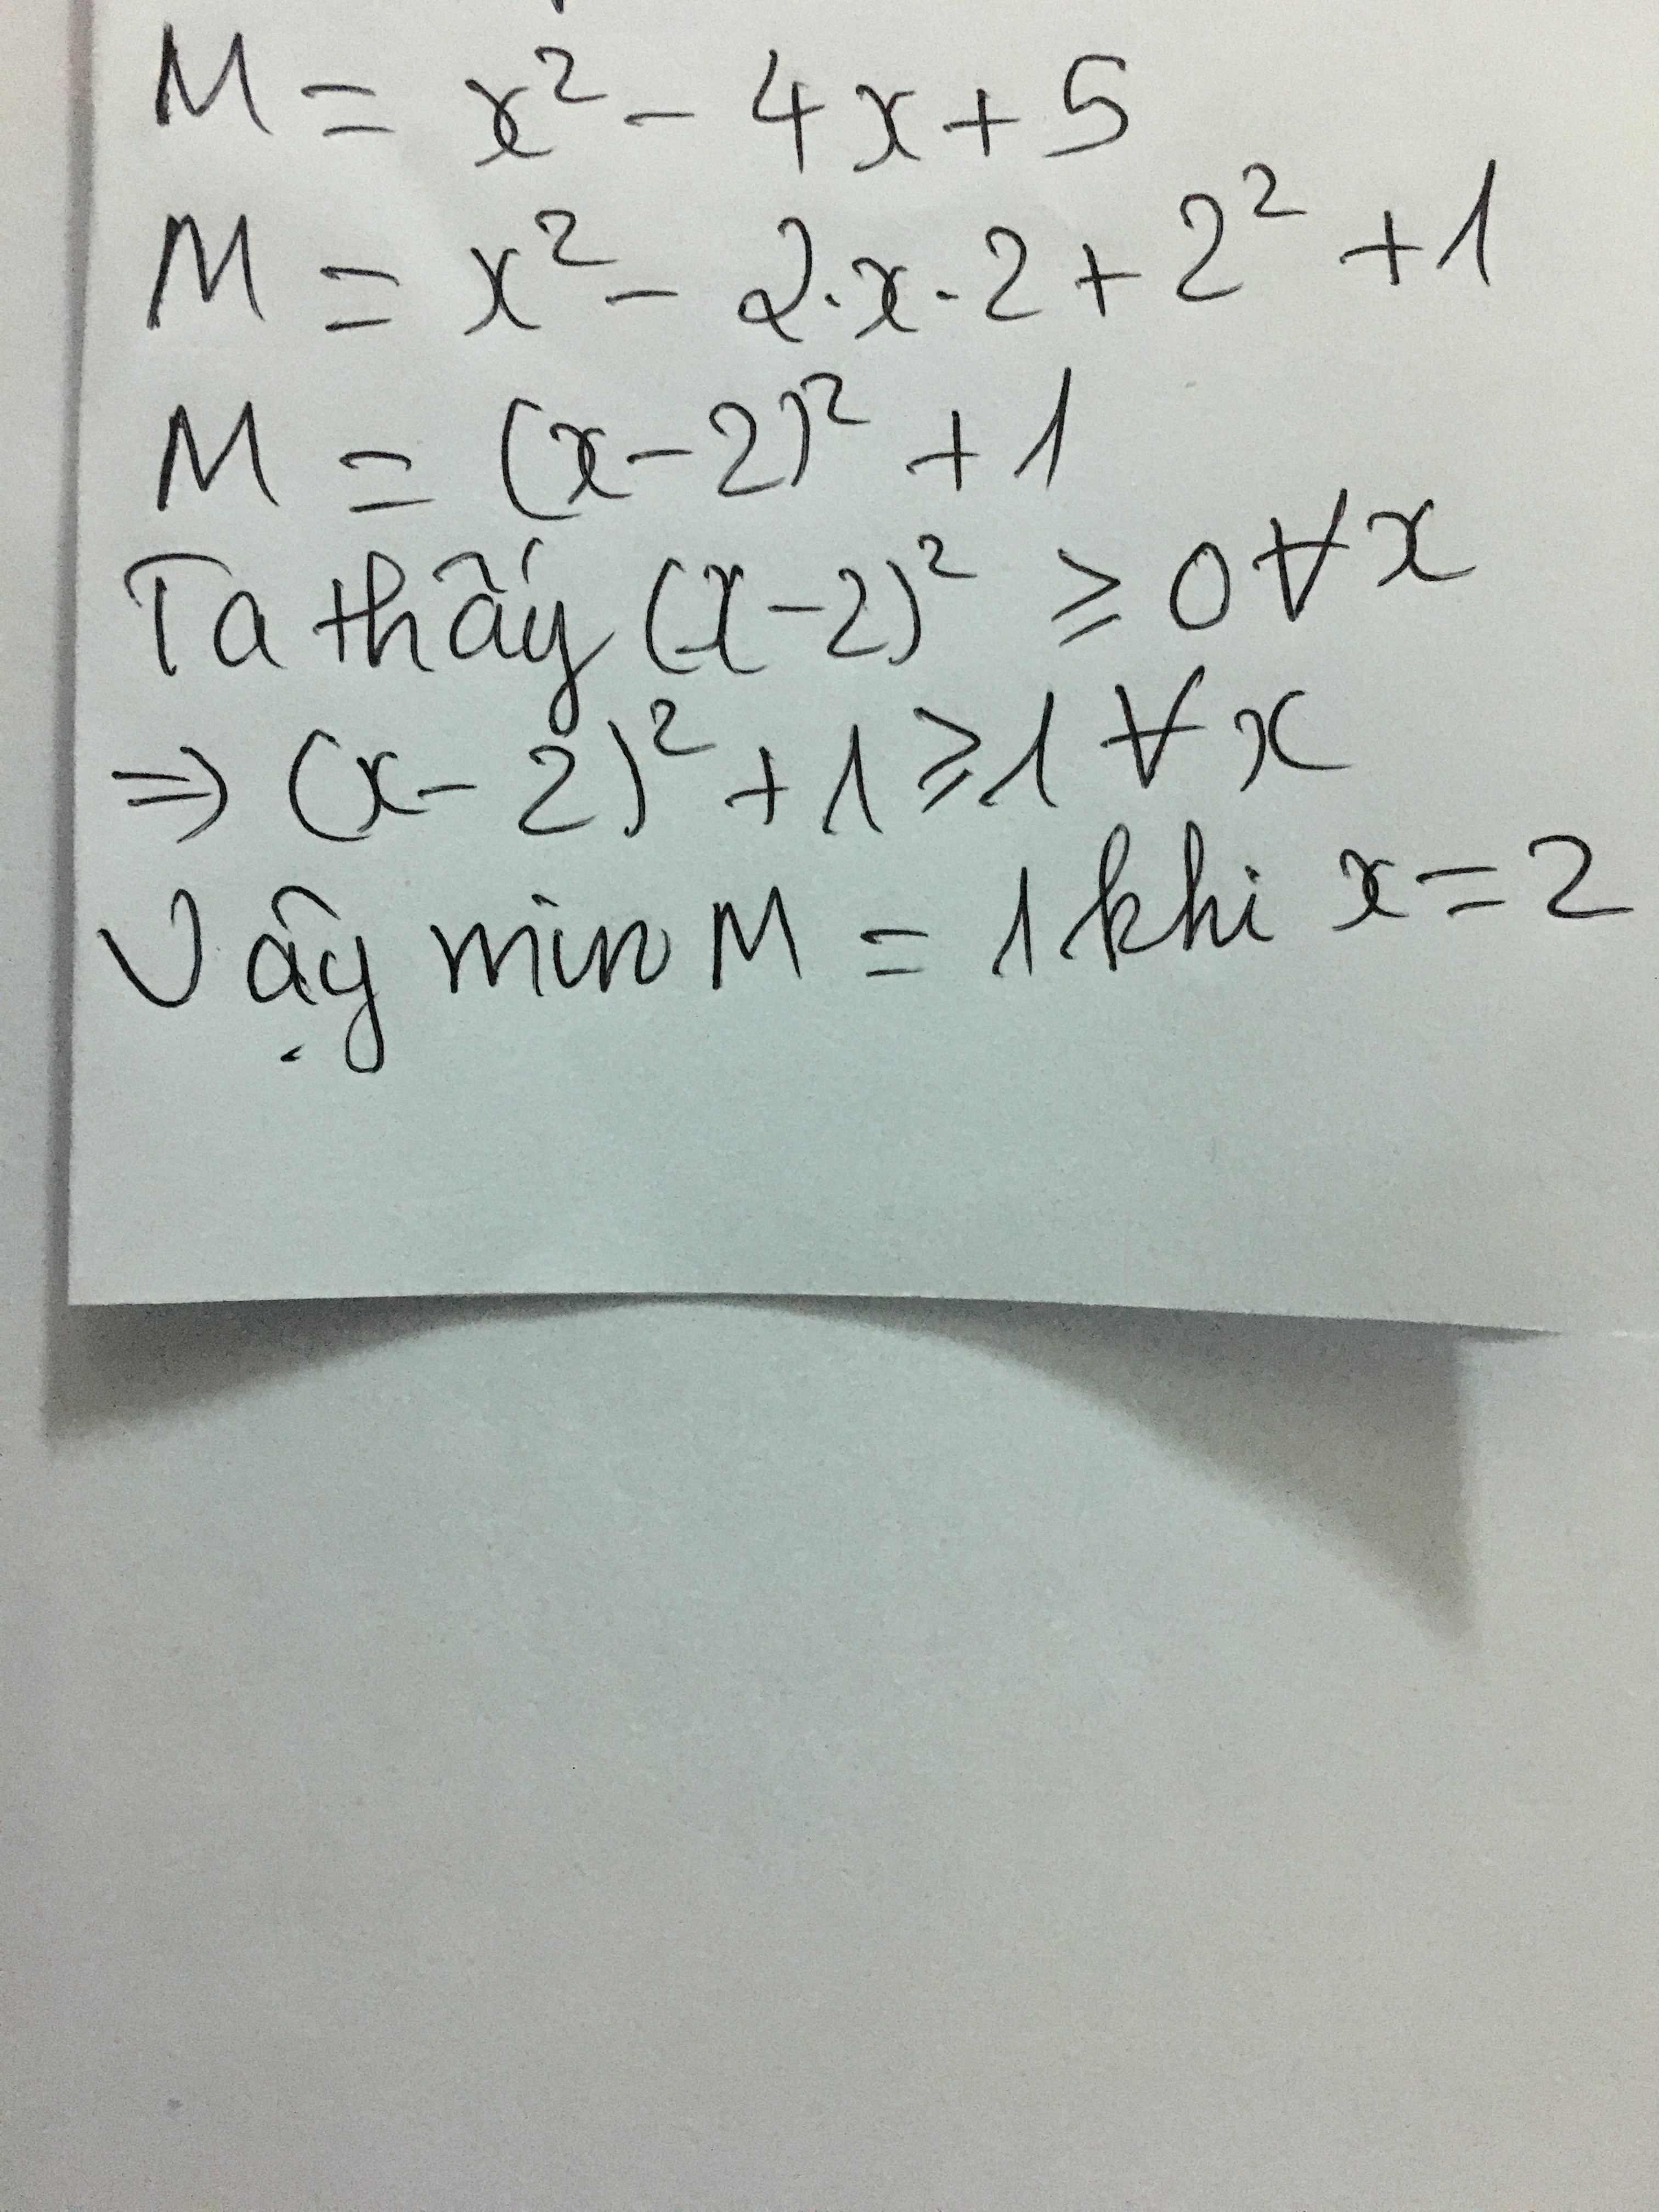 M = x² - 4x + 5
M = x² - 2.x.2 + 2² + 1
M = (x-2)² + 1
Ta thấy (x-2)² ≥ 0 ∀x
⇒ (x-2)² + 1 ≥ 1 ∀x
Vậy min M = 1 khi x = 2